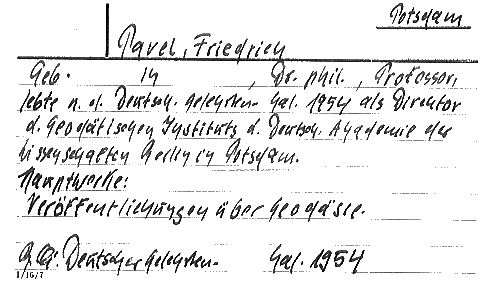 Potsdam
Pavel, Friedrich
Geb. in , Dr. phil., Professor,
lebte n. d. Deutsch. Gelehrten- Kal. 1954 als Direktor
d. Geodätischen Instituts d. Deutsch. Akademie der
Wissenschaften Berlin in Potsdam.
Hauptwerke:
Veröffentlichungen über Geodäsie.
Deutscher Gelehrten- Kal. 1954
1/16/7